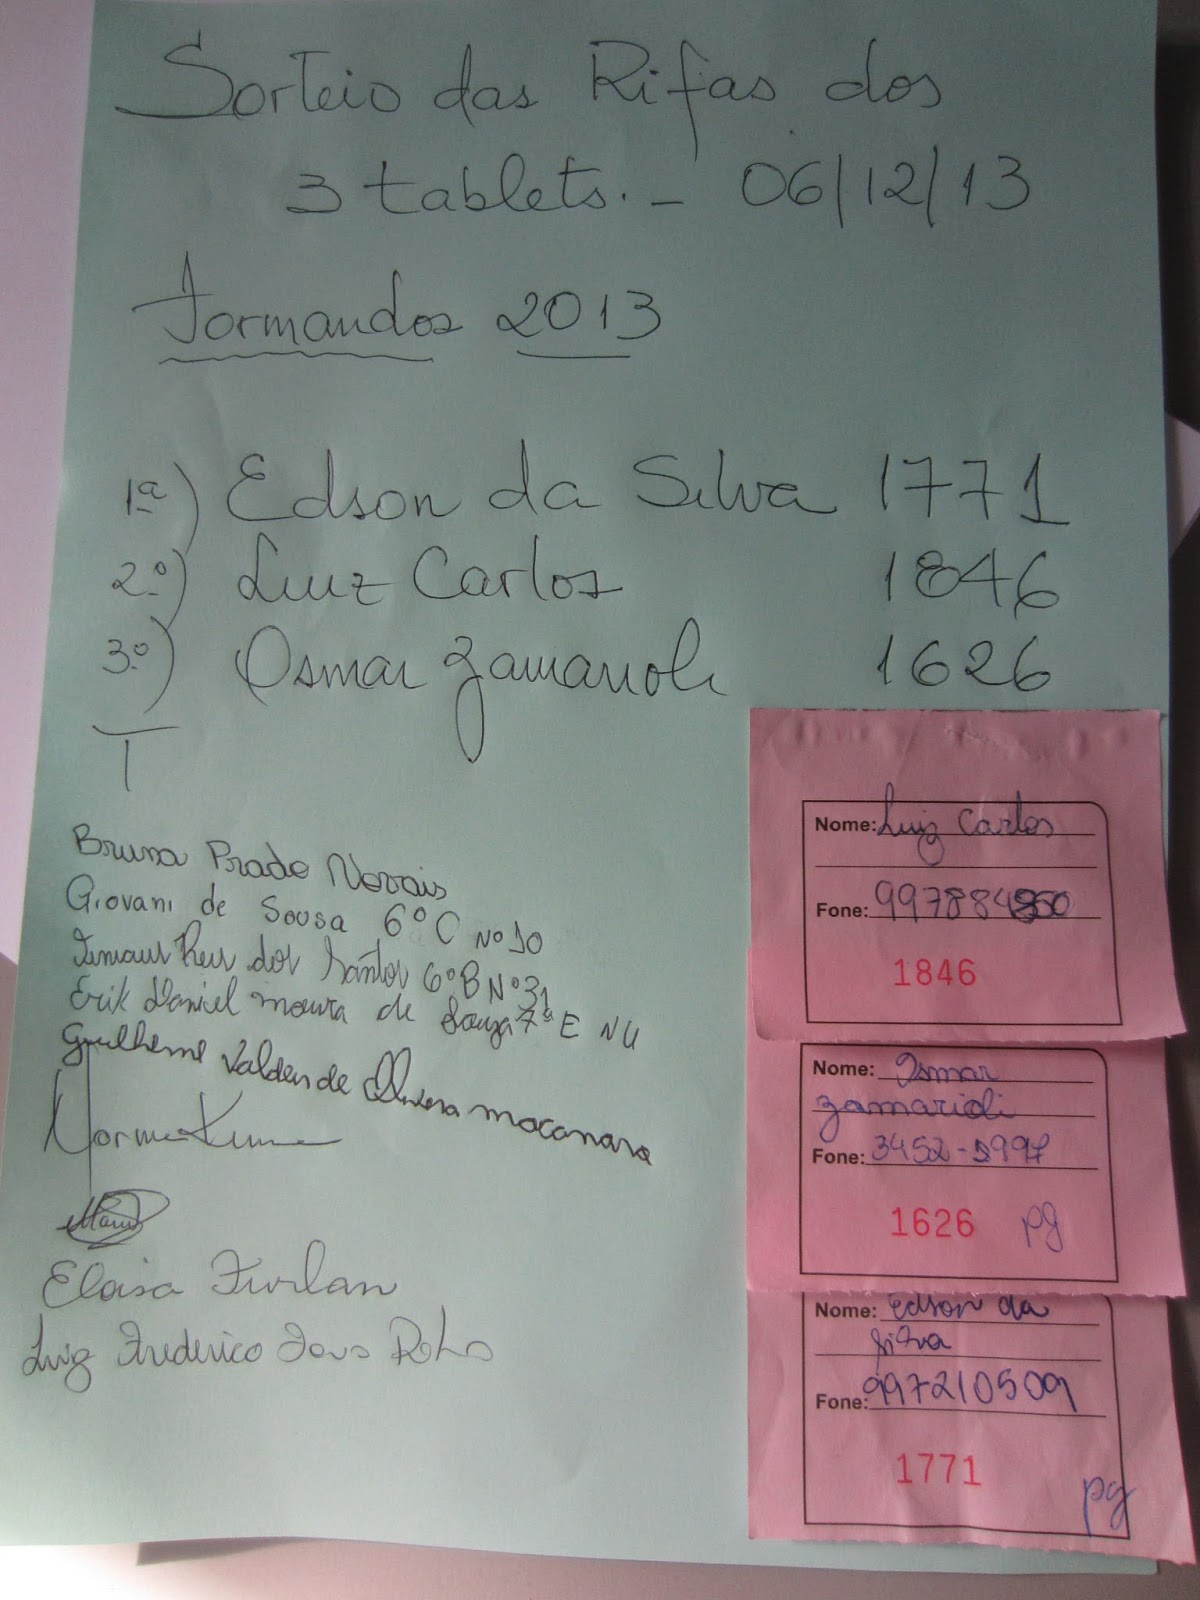 Sorteio das Rifas dos
3 tablets. - 06/12/13
Formandos 2013
1ª) Edson da Silva 1771
2º) Luiz Carlos 1846
3º) Osmar Zamarioli 1626
T
Bruna Prado Novais
Giovani de Sousa 6º C Nº 10
dos Santos 6º B Nº 31
Erik Daniel moura de Souza 7ª E
Guilherme Valden de Oliveira
Eloisa Furlan
Luiz Frederico
Nome: Luiz Carlos
Fone: 997884
1846
Nome: Osmar
Zamarioli
Fone: 3452-5997
1626 pg
Nome: Edson da
Silva
Fone: 997210509
1771
pg